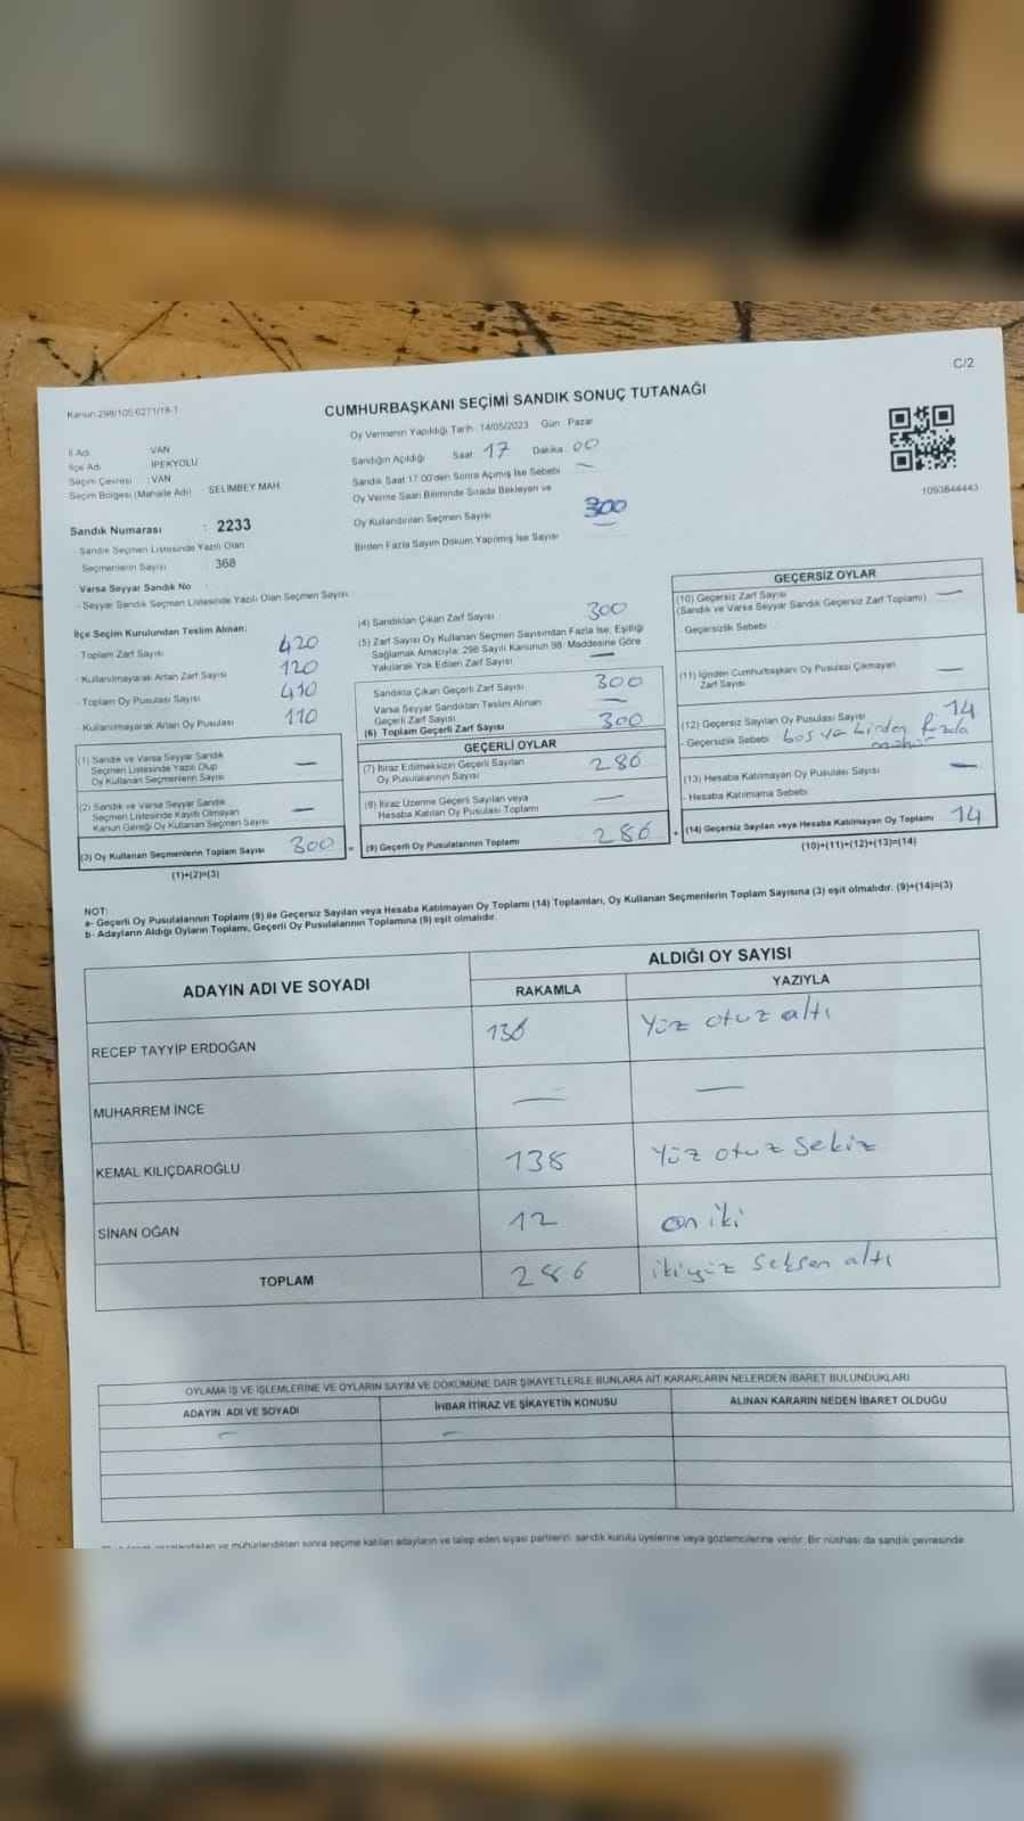 C/2
Kanun:298/105 6271/18-1
CUMHURBAŞKANI SEÇİMİ SANDIK SONUÇ TUTANAĞI
İl Adı : VAN
İlçe Adı : İPEKYOLU
Seçim Çevresi : VAN
Seçim Bölgesi (Mahalle Adı) : SELİMBEY MAH.
Sandık Numarası : 2233
- Sandık Seçmen Listesinde Yazılı Olan
Seçmenlerin Sayısı 368
Varsa Seyyar Sandık No :
- Seyyar Sandık Seçmen Listesinde Yazılı Olan Seçmen Sayısı
Oy Vermenin Yapıldığı Tarih : 14/05/2023 Gün : Pazar
Sandığın Açıldığı Saat: 17 Dakika 00
Sandık Saat 17.00'den Sonra Açılmış İse Sebebi —
Oy Verme Saati Bitiminde Sırada Bekleyen ve
Oy Kullandırılan Seçmen Sayısı 300
Birden Fazla Sayım Döküm Yapılmış İse Sayısı
1093844443
İlçe Seçim Kurulundan Teslim Alınan:
- Toplam Zarf Sayısı 420
- Kullanılmayarak Artan Zarf Sayısı 120
- Toplam Oy Pusulası Sayısı 410
- Kullanılmayarak Artan Oy Pusulası 110
(1) Sandık ve Varsa Seyyar Sandık
Seçmen Listesinde Yazılı Olup
Oy Kullanan Seçmenlerin Sayısı —
(2) Sandık ve Varsa Seyyar Sandık
Seçmen Listesinde Kayıtlı Olmayan
Kanun Gereği Oy Kullanan Seçmen Sayısı —
(3) Oy Kullanan Seçmenlerin Toplam Sayısı 300
(1)+(2)=(3)
(4) Sandıktan Çıkan Zarf Sayısı 300
(5) Zarf Sayısı Oy Kullanan Seçmen Sayısından Fazla İse, Eşitliği
Sağlamak Amacıyla; 298 Sayılı Kanunun 98. Maddesine Göre
Yakılarak Yok Edilen Zarf Sayısı —
Sandıkta Çıkan Geçerli Zarf Sayısı 300
Varsa Seyyar Sandıktan Teslim Alınan
Geçerli Zarf Sayısı —
(6) Toplam Geçerli Zarf Sayısı 300
GEÇERLİ OYLAR
(7) İtiraz Edilmeksizin Geçerli Sayılan
Oy Pusulalarının Sayısı 286
(8) İtiraz Üzerine Geçerli Sayılan veya
Hesaba Katılan Oy Pusulası Toplamı —
= (9) Geçerli Oy Pusulalarının Toplamı 286
GEÇERSİZ OYLAR
(10) Geçersiz Zarf Sayısı —
(Sandık ve Varsa Seyyar Sandık Geçersiz Zarf Toplamı)
Geçersizlik Sebebi
(11) İçinden Cumhurbaşkanı Oy Pusulası Çıkmayan
Zarf Sayısı —
(12) Geçersiz Sayılan Oy Pusulası Sayısı 14
- Geçersizlik Sebebi boş ve birden fazla
(13) Hesaba Katılmayan Oy Pusulası Sayısı —
- Hesaba Katılmama Sebebi
+ (14) Geçersiz Sayılan veya Hesaba Katılmayan Oy Toplamı 14
(10)+(11)+(12)+(13)=(14)
NOT:
a- Geçerli Oy Pusulalarının Toplamı (9) ile Geçersiz Sayılan veya Hesaba Katılmayan Oy Toplamı (14) Toplamları, Oy Kullanan Seçmenlerin Toplam Sayısına (3) eşit olmalıdır. (9)+(14)=(3)
b- Adayların Aldığı Oyların Toplamı, Geçerli Oy Pusulalarının Toplamına (9) eşit olmalıdır.
ADAYIN ADI VE SOYADI
ALDIĞI OY SAYISI
RAKAMLA YAZIYLA
RECEP TAYYİP ERDOĞAN 136 Yüz otuz altı
MUHARREM İNCE — —
KEMAL KILIÇDAROĞLU 138 Yüz otuz sekiz
SİNAN OĞAN 12 on iki
TOPLAM 286 ikiyüz seksen altı
OYLAMA İŞ VE İŞLEMLERİNE VE OYLARIN SAYIM VE DÖKÜMÜNE DAİR ŞİKAYETLERLE BUNLARA AİT KARARLARIN NELERDEN İBARET BULUNDUKLARI
ADAYIN ADI VE SOYADI İHBAR İTİRAZ VE ŞİKAYETİN KONUSU ALINAN KARARIN NEDEN İBARET OLDUĞU
— —
ve mühürlendikten sonra seçime katılan adayların ve talep eden siyasi partilerin sandık kurulu üyelerine veya gözlemcilerine verilir. Bir nüshası da sandık çevresinde